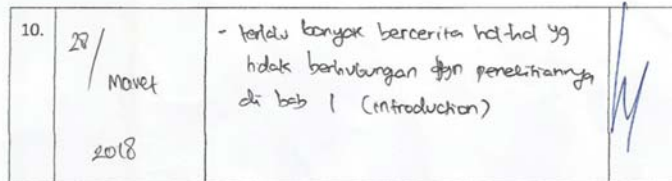 10.
28/
Maret
2018
- terlalu banyak bercerita hal-hal yg
tidak berhubungan dgn penelitiannya
di bab 1 (introduction)